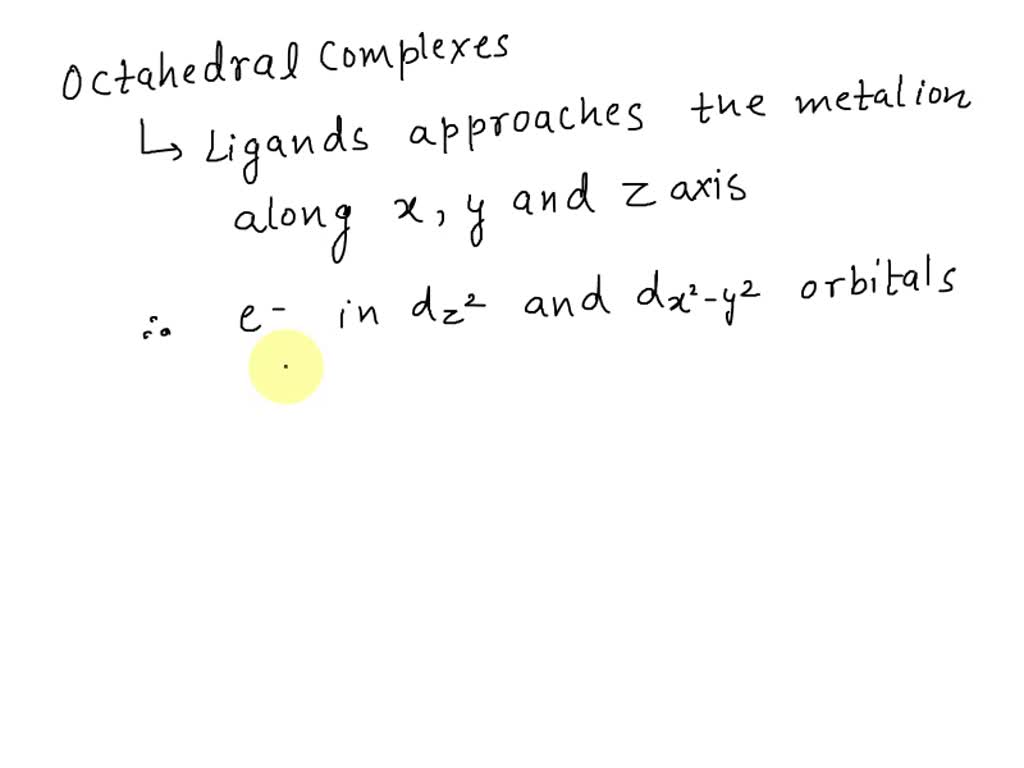 Octahedral Complexes
↳ Ligands approaches the metal ion
along x, y and z axis
∴ e⁻ in dz² and dx²-y² orbitals